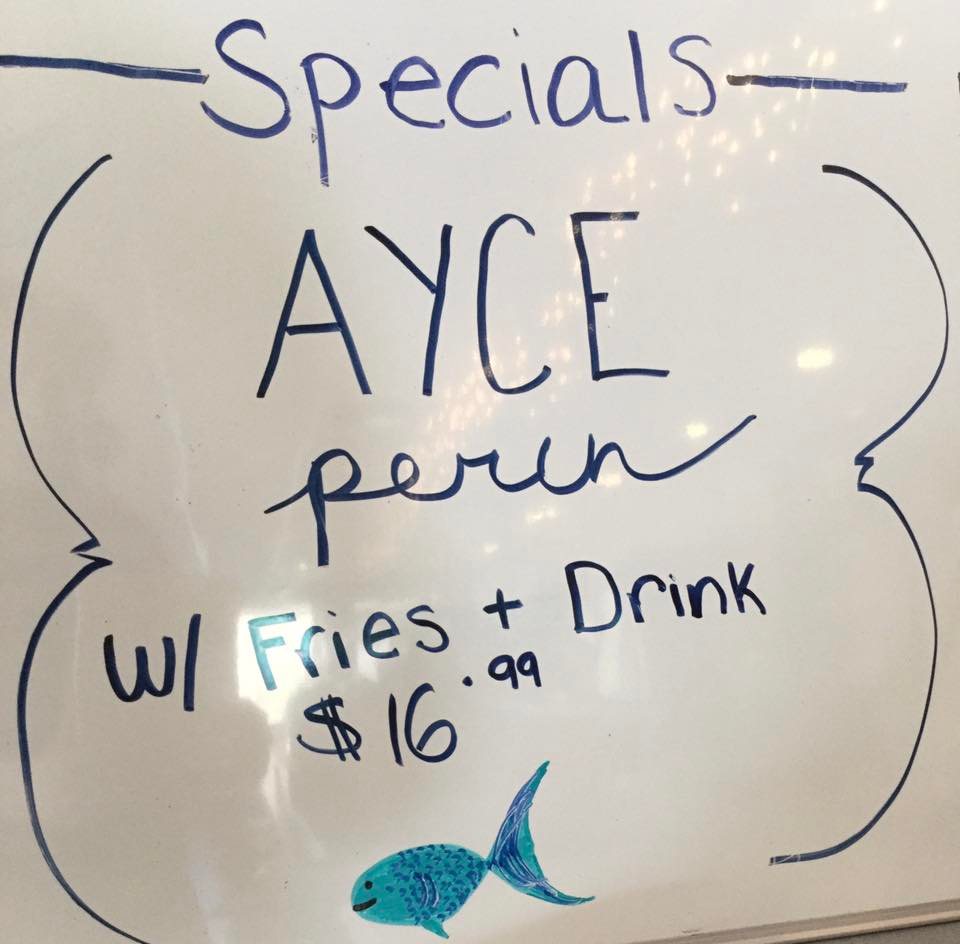 Specials
AYCE
perch
W/ Fries + Drink
$16.99